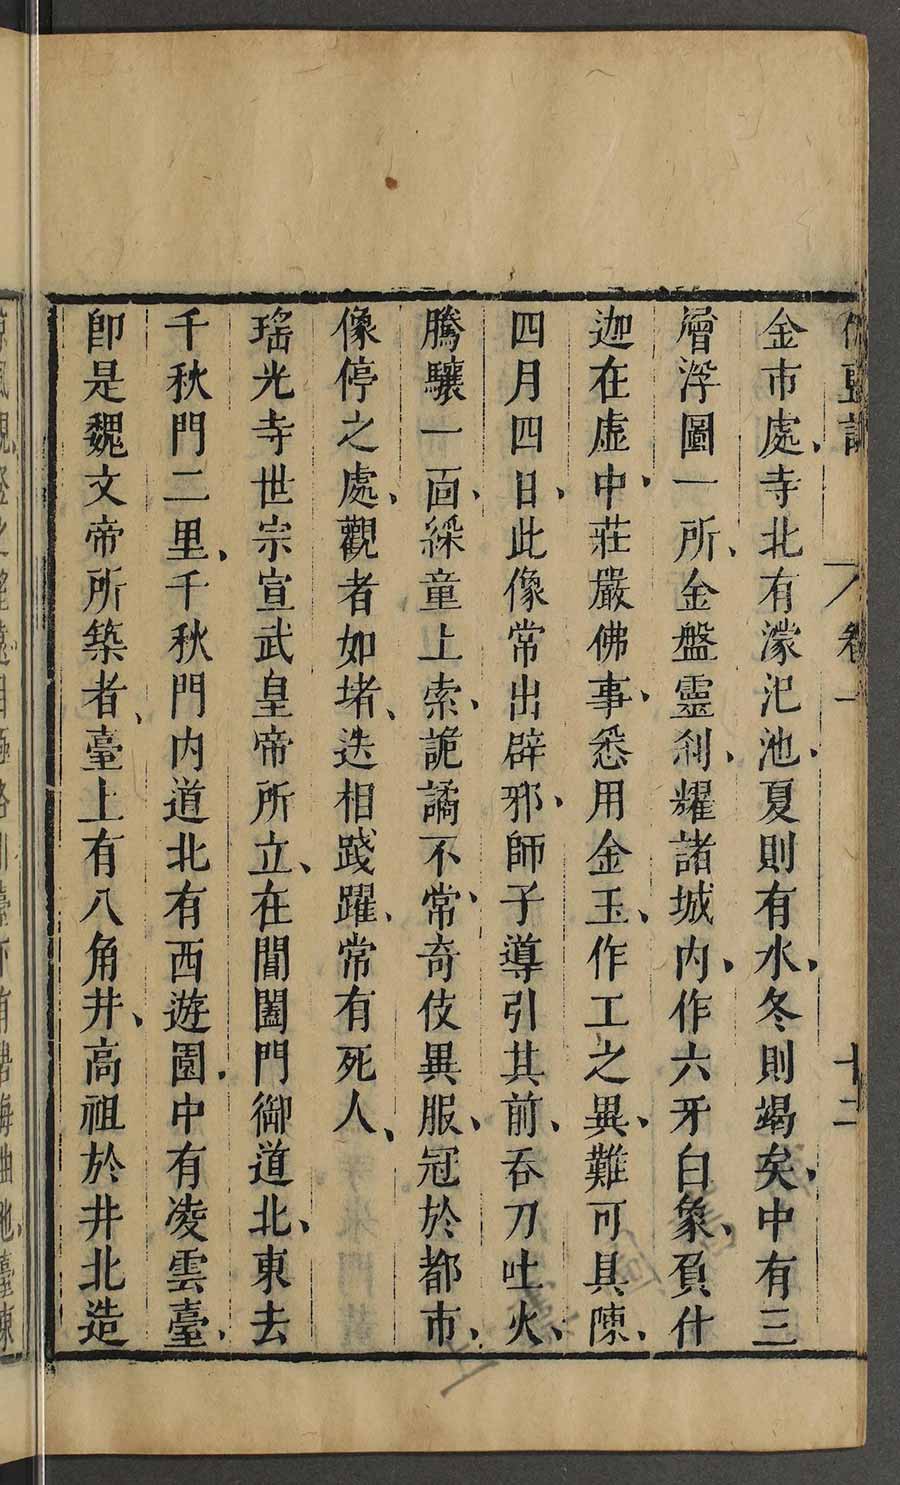 伽藍記 卷一 十二
金市處、寺北有濛汜池、夏則有水、冬則竭矣、中有三
層浮圖一所、金盤靈刹、耀諸城内、作六牙白象、負什
迦在虛中、莊嚴佛事、悉用金玉、作工之異、難可具陳、
四月四日、此像常出、辟邪、師子導引其前、吞刀吐火、
騰驤一面、綵童上索、詭譎不常、奇伎異服、冠於都市、
像停之處、觀者如堵、迭相踐躍、常有死人、
瑤光寺世宗宣武皇帝所立、在閶闔門御道北、東去
千秋門二里、千秋門内道北有西遊園、中有凌雲臺、
即是魏文帝所築者、臺上有八角井、高祖於井北造